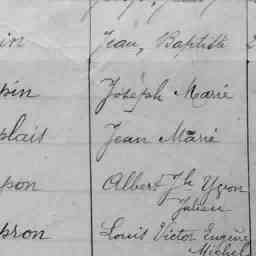 in Jean, Baptiste 2
pin Joseph Marie
plais Jean Marie
pon Albert Jh Yvon
Julien
pron Louis Victor Eugène
Michel